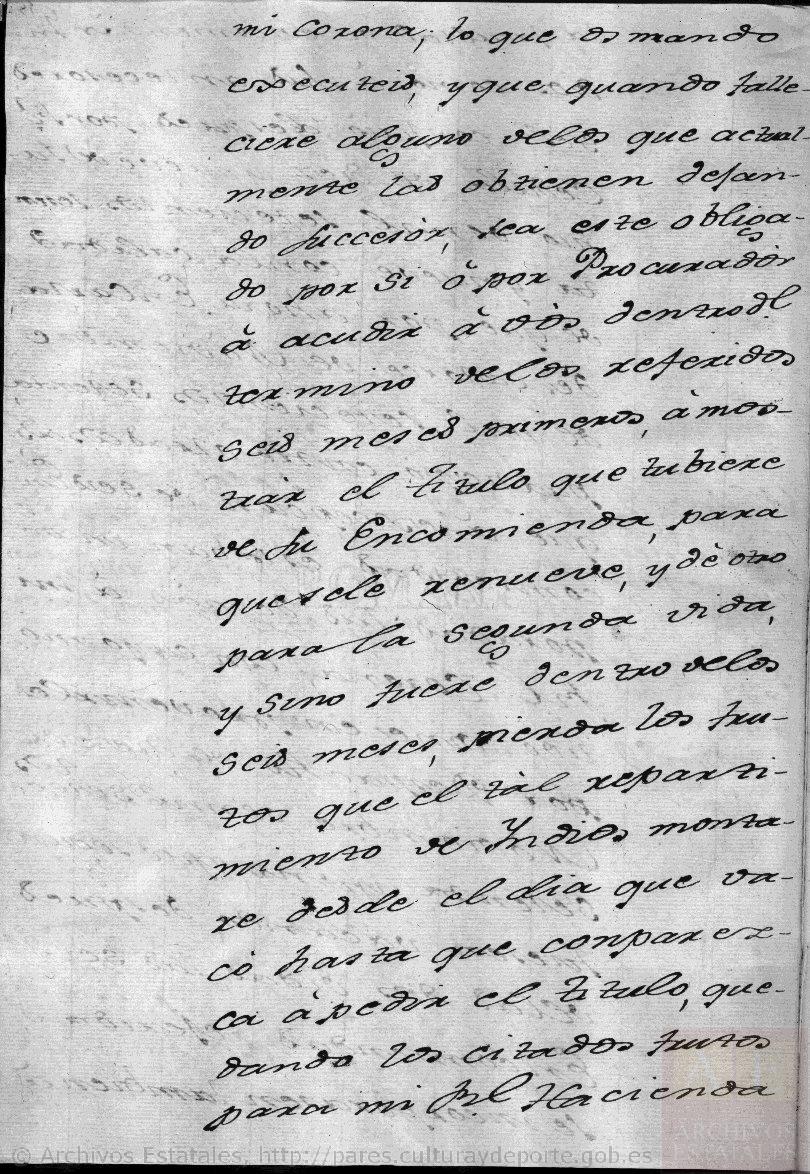 mi Corona, lo que os mando
executeis, y que quando falle-
ciere alguno delos que actual-
mente las obtienen dejan-
do succesòr, sea este obliga-
do por si ò por Procuradòr
à acudir à vòs dentro dl
termino delos referidos
seis meses primeros, à mos-
tràr el titulo que tubiere
de su Encomienda, para
quesele renueve, y dè otro
para la segunda vida,
y sino fuere dentro delos
seis meses, pierda los fru-
tos que el tàl reparti-
miento de Yndios monta-
re desde el dia que va-
cò hasta que conparez-
ca à pedir el titulo, que-
dando los citados frutos
para mi Rl Hacienda
© Archivos Estatales, http://pares.culturaydeporte.gob.es
ARCHIVOS
ESTATALES